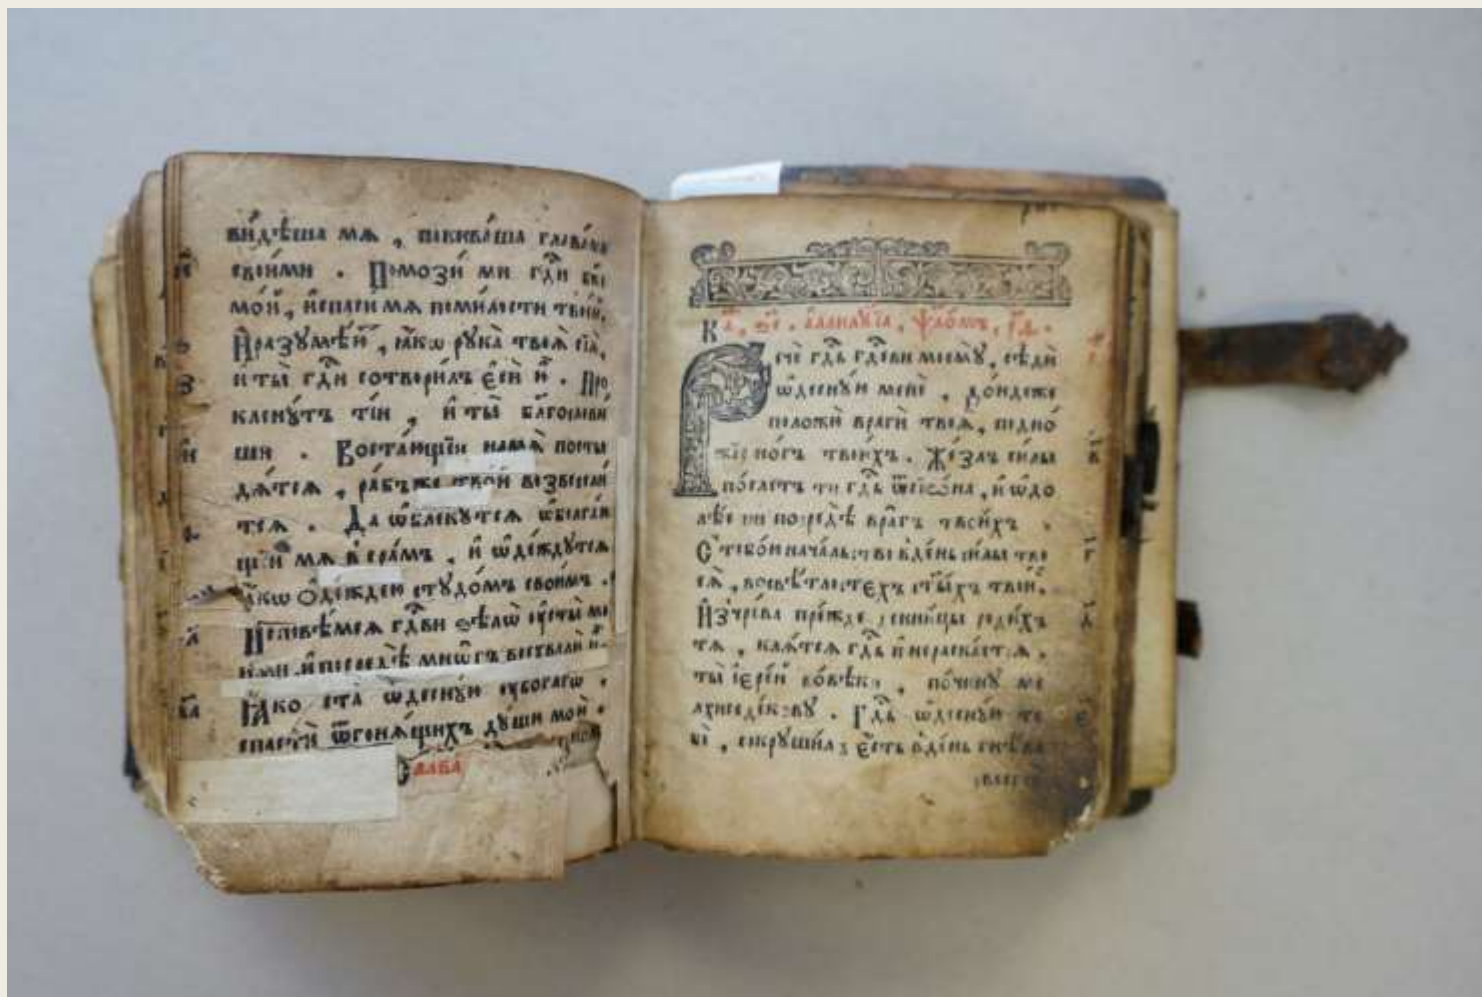 ви́дѣша мѧ , покива́ша глава́ми
свои́ми . Помози́ ми гд҇и бж҃е
мо́й , и҆спаси мѧ помилости твое́й.
И҆разꙋмѣ́ю҆ , ꙗ҆́кѡ рꙋка̀ твоѧ̀ сїѧ̀ ,
и҆ ты̀ гд҇и сотвори́лъ є҆сѝ ю҆̀ . Про
кленꙋ́тъ ті́и , и҆ ты̀ бл҃гослови́
ши . Востаю́щїи намѧ̀ посты
дѧ́тсѧ , ра́бъже тво́й возвесели́
тсѧ . Да ѡ҆блекꙋ́тсѧ ѡ҆болга́ю
щїи мѧ в̾сра́мъ , и҆ ѡ҆де́ждꙋтсѧ
ꙗ҆́кѡ Ѻ҆де́ждею стꙋдо́мъ свои́мъ .
И҆сповѣ́мсѧ гд҇ви ѕѣлѡ̀ ᲂу҆сты̀ мо
и́ми , и҆посредѣ̀ мнѡ́гъ восхвалю̀ и҆̀ .
Ꙗ҆́ко ста̀ ѡ҆деснꙋ́ю ᲂу҆бо́гагѡ ,
спастѝ ѿгонѧ́щихъ дꙋ́шꙋ мою̀ .
Слава
К а҃ , ѕ҃е . а҆ллилꙋ́їа , ѱало́мъ , р҃ѳ .
Речѐ гд҇ь гд҇еви моемꙋ̀ , сѣдѝ
ѡ҆деснꙋ́ю менѐ , до́ндеже
положꙋ̀ врагѝ твоѧ̀ , подно́
жїе но́гъ твои́хъ . Же́злъ си́лы
по́слетъ ти гд҇ь ѿсїо́на , и҆ ѡ҆до
лѣ́еши посредѣ̀ вра̑гъ твои́хъ .
С̾ тобо́ю нача́льство в̾де́нь си́лы тво
еѧ̀ , восвѣ́тлостєхъ ст҃ы́хъ твои́х .
И҆з̾чре́ва пре́жде денни́цы роди́хъ
тѧ , клѧ́тсѧ гд҇ь и҆нераска́етсѧ ,
ты̀ і҆ере́й во́вѣки , по́чинꙋ ме
лхиседе́ковꙋ . Гд҇ь ѡ҆деснꙋ́ю те
бѐ , сокрꙋши́лъ є҆́сть в̾де́нь гнѣ́ва